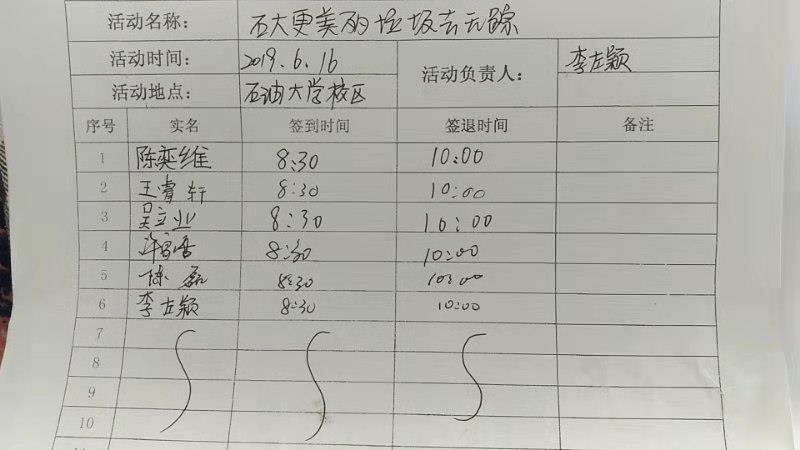 活动名称： 石大更美丽垃圾去无踪
活动时间： 2019.6.16 活动负责人： 李左颖
活动地点： 石油大学校区
序号 实名 签到时间 签退时间 备注
1 陈奕维 8:30 10:00
2 王睿轩 8:30 10:00
3 吴立业 8:30 10:00
4 8:30 10:00
5 陈磊 8:30 10:00
6 李左颖 8:30 10:00
7
8
9
10